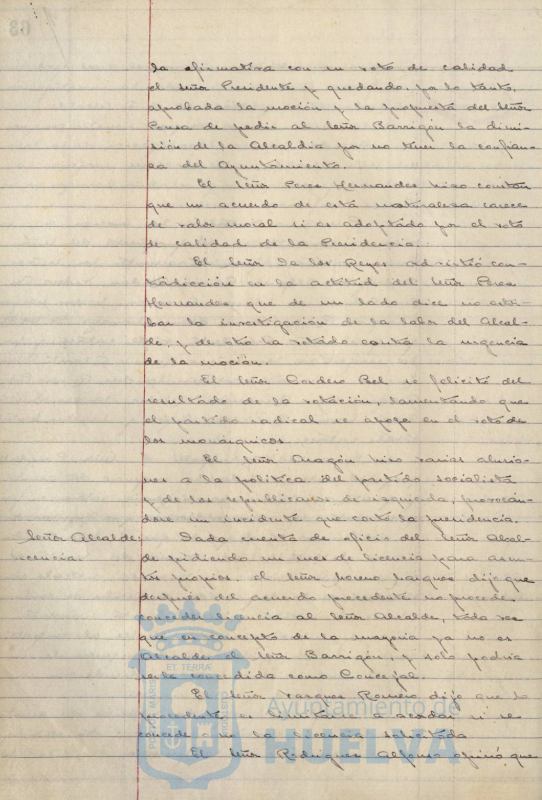 la afirmativa con su voto de calidad
el señor Presidente y quedando, por lo tanto,
aprobada la moción y la propuesta del Señor
Ponsa de pedir al Señor Barrigón la dimi-
sión de la Alcaldía por no tener la confian-
za del Ayuntamiento.
El Señor Peres Hernandes hizo constar
que un acuerdo de esta naturaleza carece
de valor moral si es adoptado por el voto
de calidad de la Presidencia.
El Señor De los Reyes advirtió con-
tradicción en la actitud del Señor Peres
Hernandes, que de un lado dice no
la investigación de la labor del Alcal-
de, y de otro ha votado contra la urgencia
de la moción.
El Señor Cordero Bel se felicitó del
resultado de la votación, lamentando que
el partido radical se apoye en el voto de
los monárquicos.
El Señor Aragón hizo varias alusio-
nes a la política del partido socialista
y de los republicanos de izquierda, provocán-
dose un incidente que cortó la presidencia.
Señor Alcalde:
licencia.
Dada cuenta de oficio del Señor Alcal-
de pidiendo un mes de licencia para asun-
tos propios, el Señor Moreno Marques dijo que
después del acuerdo precedente no procede
conceder licencia al Señor Alcalde, toda vez
que en concepto de la mayoría ya no es
Alcalde el Señor Barrigón, y solo podría
serle concedida como Concejal.
El Señor Vasques Romero dijo que lo
procedente es limitarse a acordar si se
concede o no la licencia solicitada
El Señor Rodrigues Alfonso opinó que
68
PORTUS MARIS
ET TERRAE
CUSTODIA
Ayuntamiento de
HUELVA